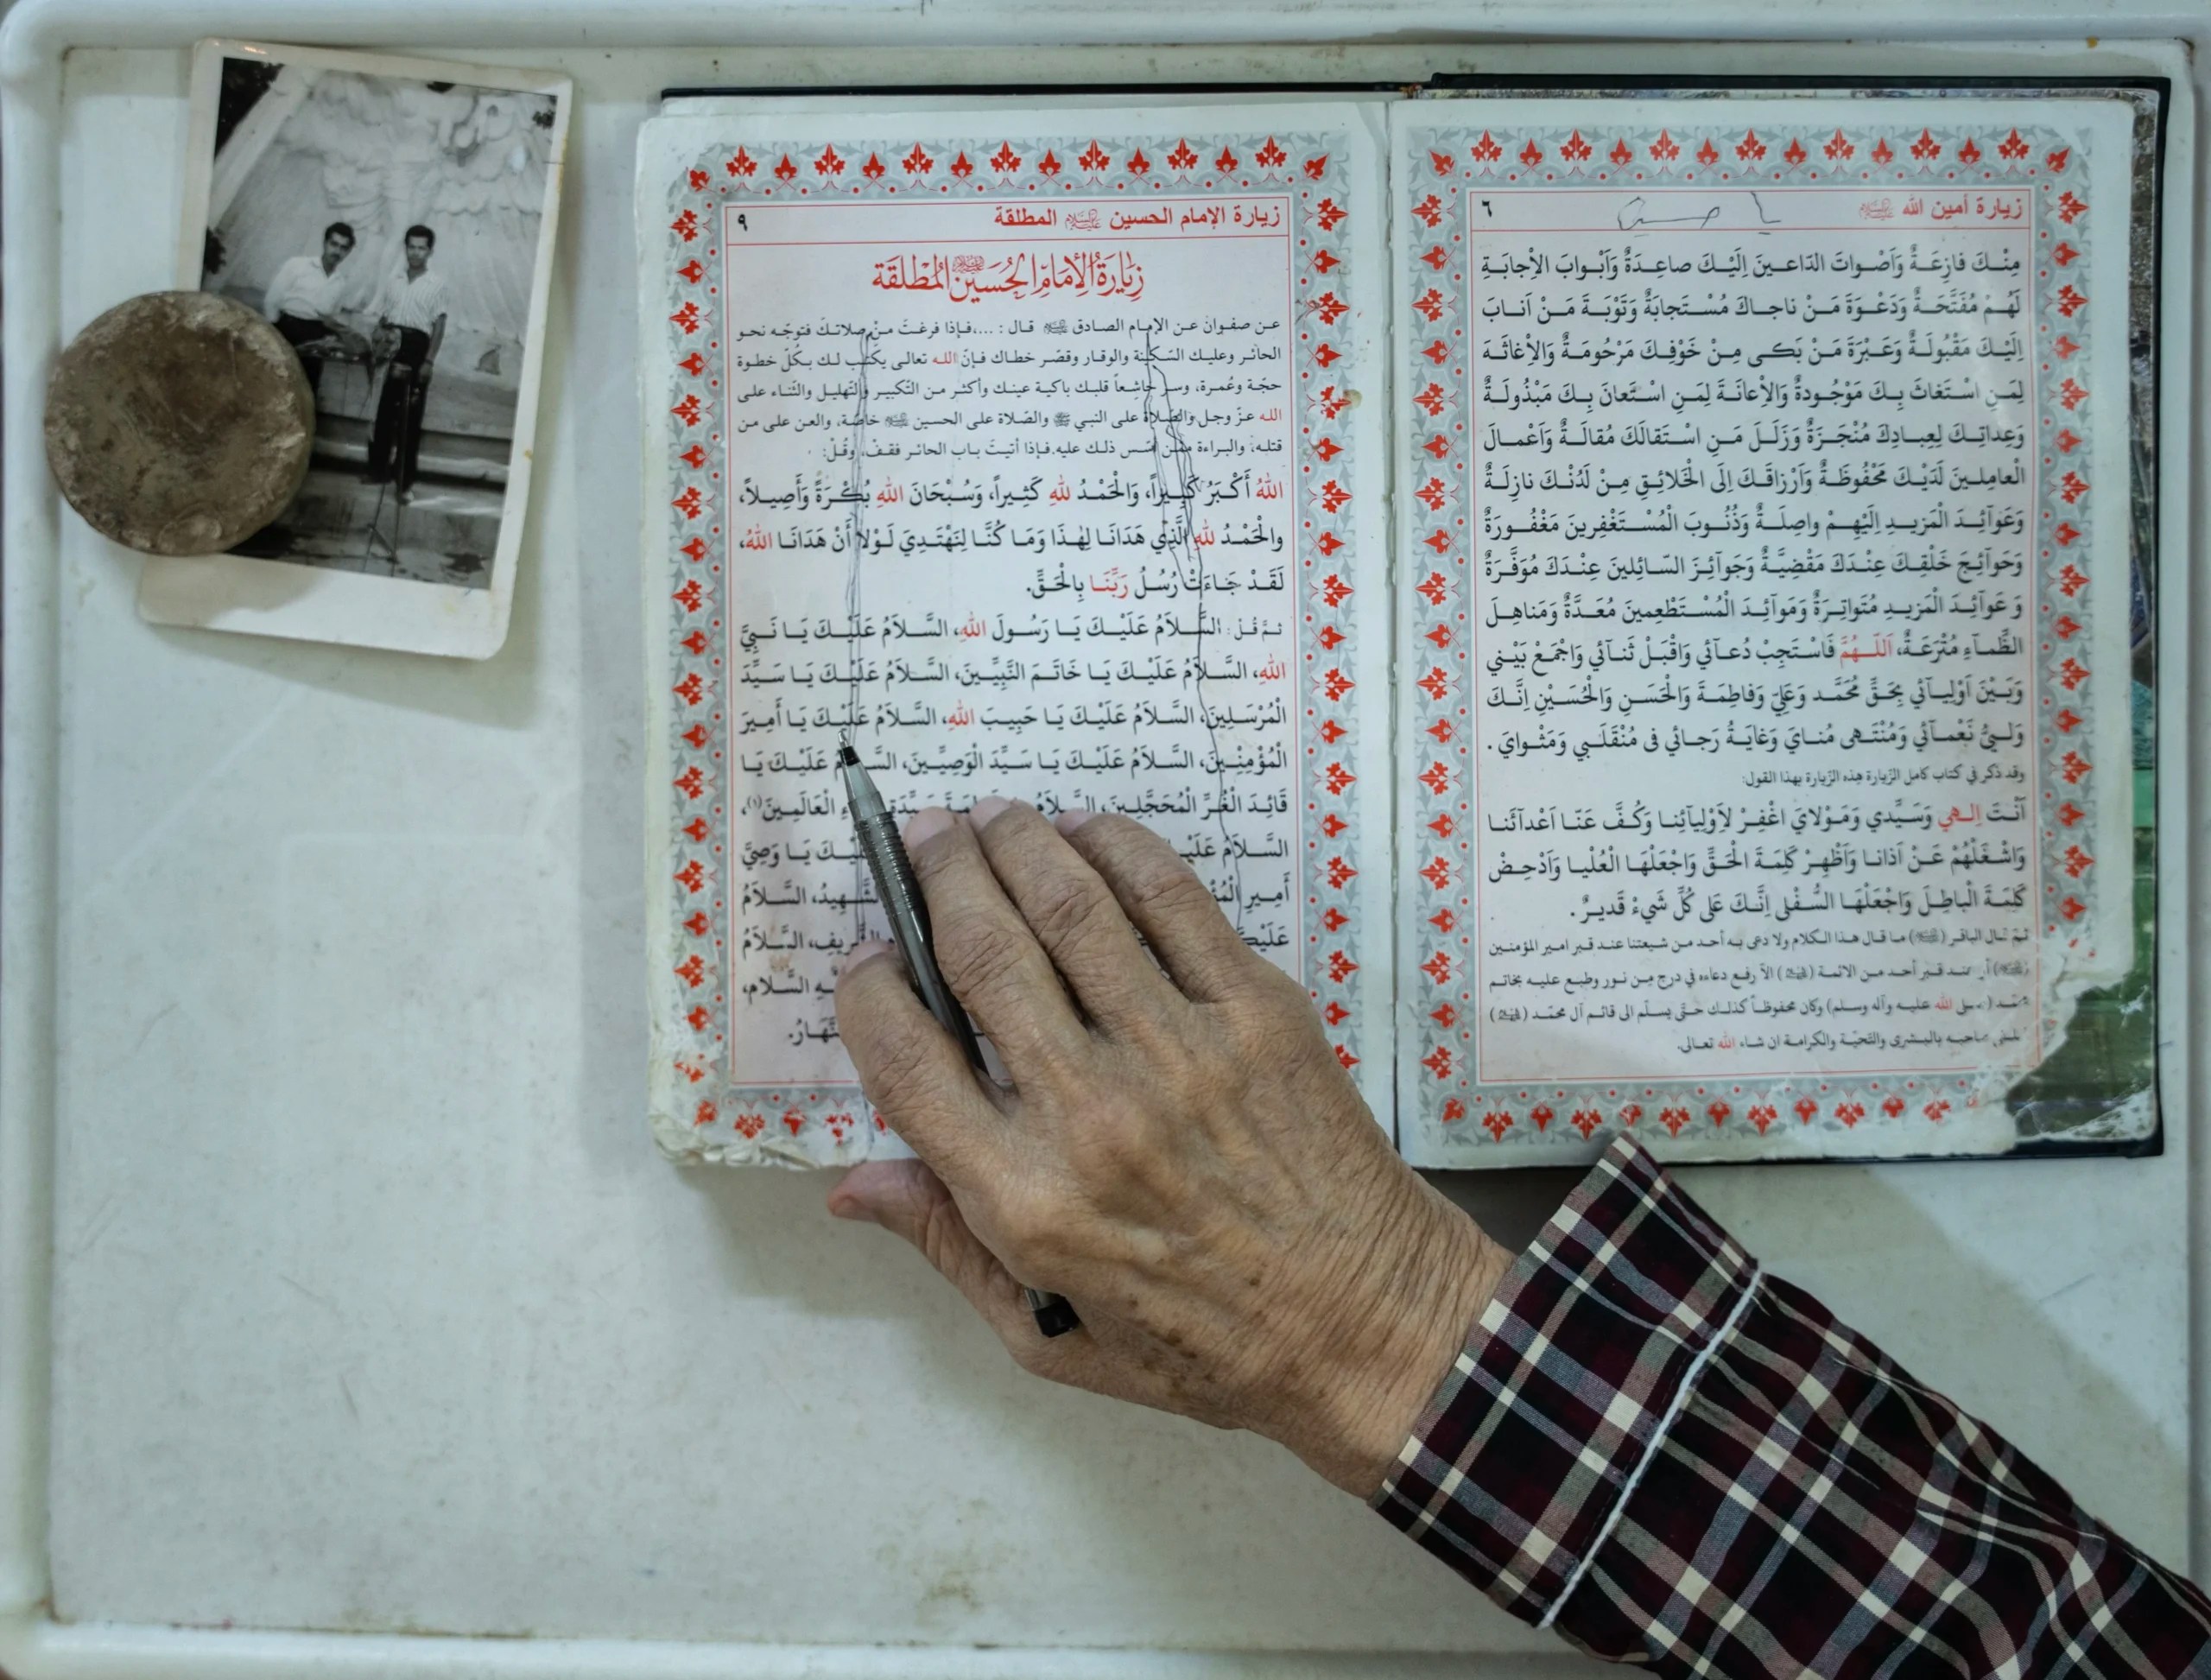 زيارة أمين الله عليه السلام
يا حسين
٦
مِنْكَ فازِعَةٌ وَاَصْواتَ الدّاعينَ اِلَيْكَ صاعِدَةٌ وَاَبْوابَ الْاِجابَةِ
لَهُمْ مُفَتَّحَةٌ وَدَعْوَةَ مَنْ ناجاكَ مُسْتَجابَةٌ وَتَوْبَةَ مَنْ اَنابَ
اِلَيْكَ مَقْبُولَةٌ وَعَبْرَةَ مَنْ بَكى مِنْ خَوْفِكَ مَرْحُومَةٌ وَالْاِغاثَةَ
لِمَنِ اسْتَغاثَ بِكَ مَوْجُودةٌ وَالْاِعانَةَ لِمَنِ اسْتَعانَ بِكَ مَبْذُولَةٌ
وَعِداتِكَ لِعِبادِكَ مُنْجَزَةٌ وَزَلَلَ مَنِ اسْتَقالَكَ مُقالَةٌ وَاَعْمالَ
الْعامِلينَ لَدَيْكَ مَحْفُوظَةٌ وَاَرْزاقَكَ اِلَى الْخَلائِقِ مِنْ لَدُنْكَ نازِلَةٌ
وَعَوآئِدَ الْمَزيدِ اِلَيْهِمْ واصِلَةٌ وَذُنُوبَ الْمُسْتَغْفِرينَ مَغْفُورَةٌ
وَحَوآئِجَ خَلْقِكَ عِنْدَكَ مَقْضِيَّةٌ وَجَوآئِزَ السّائِلينَ عِنْدَكَ مُوَفَّرَةٌ
وَعَوآئِدَ الْمَزيدِ مُتَواتِرَةٌ وَمَوآئِدَ الْمُسْتَطْعِمينَ مُعَدَّةٌ وَمَناهِلَ
الظِّمآءِ مُتْرَعَةٌ، اَللّهُمَّ فَاسْتَجِبْ دُعآئي وَاقْبَلْ ثَنآئي وَاجْمَعْ بَيْني
وَبَيْنَ اَوْلِيآئي بِحَقِّ مُحَمَّد وَعَلِيّ وَفاطِمَةَ وَالْحَسَنِ وَالْحُسَيْنِ اِنَّكَ
وَلِيُّ نَعْمآئي وَمُنْتَهى مُنايَ وَغايَةُ رَجائي فى مُنْقَلَبي وَمَثْوايَ .
وقد ذكر في كتاب كامل الزّيارة هذه الزّيارة بهذا القول:
اَنْتَ اِلهي وَسَيِّدي وَمَوْلايَ اغْفِرْ لِاَوْلِيآئِنا وَكُفَّ عَنّا اَعْدآئَنا
وَاشْغَلْهُمْ عَنْ اَذانا وَاَظْهِرْ كَلِمَةَ الْحَقِّ وَاجْعَلْهَا الْعُلْيا وَاَدْحِضْ
كَلِمَةَ الْباطِلَ وَاجْعَلْهَا السُّفْلى اِنَّكَ عَلى كُلِّ شَيءْ قَديرٌ .
ثمّ قال الباقر (عليه السلام) ما قال هذا الكلام ولا دعى به أحد من شيعتنا عند قبر امير المؤمنين
عند قبر أحد من الائمة (عليهم السلام) الاّ رفع دعاءه في درج من نور وطبع عليه بخاتم
(صلى الله عليه وآله وسلم) وكان محفوظاً كذلك حتّى يسلّم الى قائم آل محمّد (عليهم السلام)
صاحبه بالبشرى والتّحيّة والكرامة ان شاء الله تعالى.
زيارة الإمام الحسين عليه السلام المطلقة
٩
زِيَارَةُ الإمَامِ الحُسَين عليه السلام المُطْلَقَة
عن صفوان عن الإمام الصادق عليه السلام قال : ....فإذا فرغتَ منْ صلاتكَ فتوجّه نحو
الحائر وعليك السّكينة والوقار وقصّر خطاك فإنّ الله تعالى يكتب لك بكلّ خطوة
حجّة وعُمرة، وسر خاشعاً قلبك باكية عينك وأكثر من التّكبير والتّهليل والثّناء على
الله عزّ وجل والصّلاة على النبي ﷺ والصّلاة على الحسين عليه السلام خاصّة، والعن على من
قتله، والبراءة ممّن أسّس ذلك عليه. فإذا أتيتَ باب الحائر فقفْ، وقُلْ:
اللهُ أَكْبَرُ كَبِيراً، وَالْحَمْدُ للهِ كَثِيراً، وَسُبْحَانَ اللهِ بُكْرَةً وَأَصِيلاً،
والْحَمْدُ للهِ الَّذِي هَدَانَا لِهٰذَا وَمَا كُنَّا لِنَهْتَدِيَ لَوْلَا أَنْ هَدَانَا اللهُ،
لَقَدْ جَاءَتْ رُسُلُ رَبِّنَا بِالْحَقِّ.
ثمَّ قُل: السَّلَامُ عَلَيْكَ يَا رَسُولَ اللهِ، السَّلَامُ عَلَيْكَ يَا نَبِيَّ
اللهِ، السَّلَامُ عَلَيْكَ يَا خَاتَمَ النَّبِيِّينَ، السَّلَامُ عَلَيْكَ يَا سَيِّدَ
الْمُرْسَلِينَ، السَّلَامُ عَلَيْكَ يَا حَبِيبَ اللهِ، السَّلَامُ عَلَيْكَ يَا أَمِيرَ
الْمُؤْمِنِينَ، السَّلَامُ عَلَيْكَ يَا سَيِّدَ الْوَصِيِّينَ، السَّلَامُ عَلَيْكَ يَا
قَائِدَ الْغُرِّ الْمُحَجَّلِينَ، السَّلَامُ الْعَالَمِينَ(١)،
السَّلَامُ عَلَيْكَ يَا وَصِيَّ
أَمِيرِ الشَّهِيدُ، السَّلَامُ
السَّلَامُ
السَّلام،